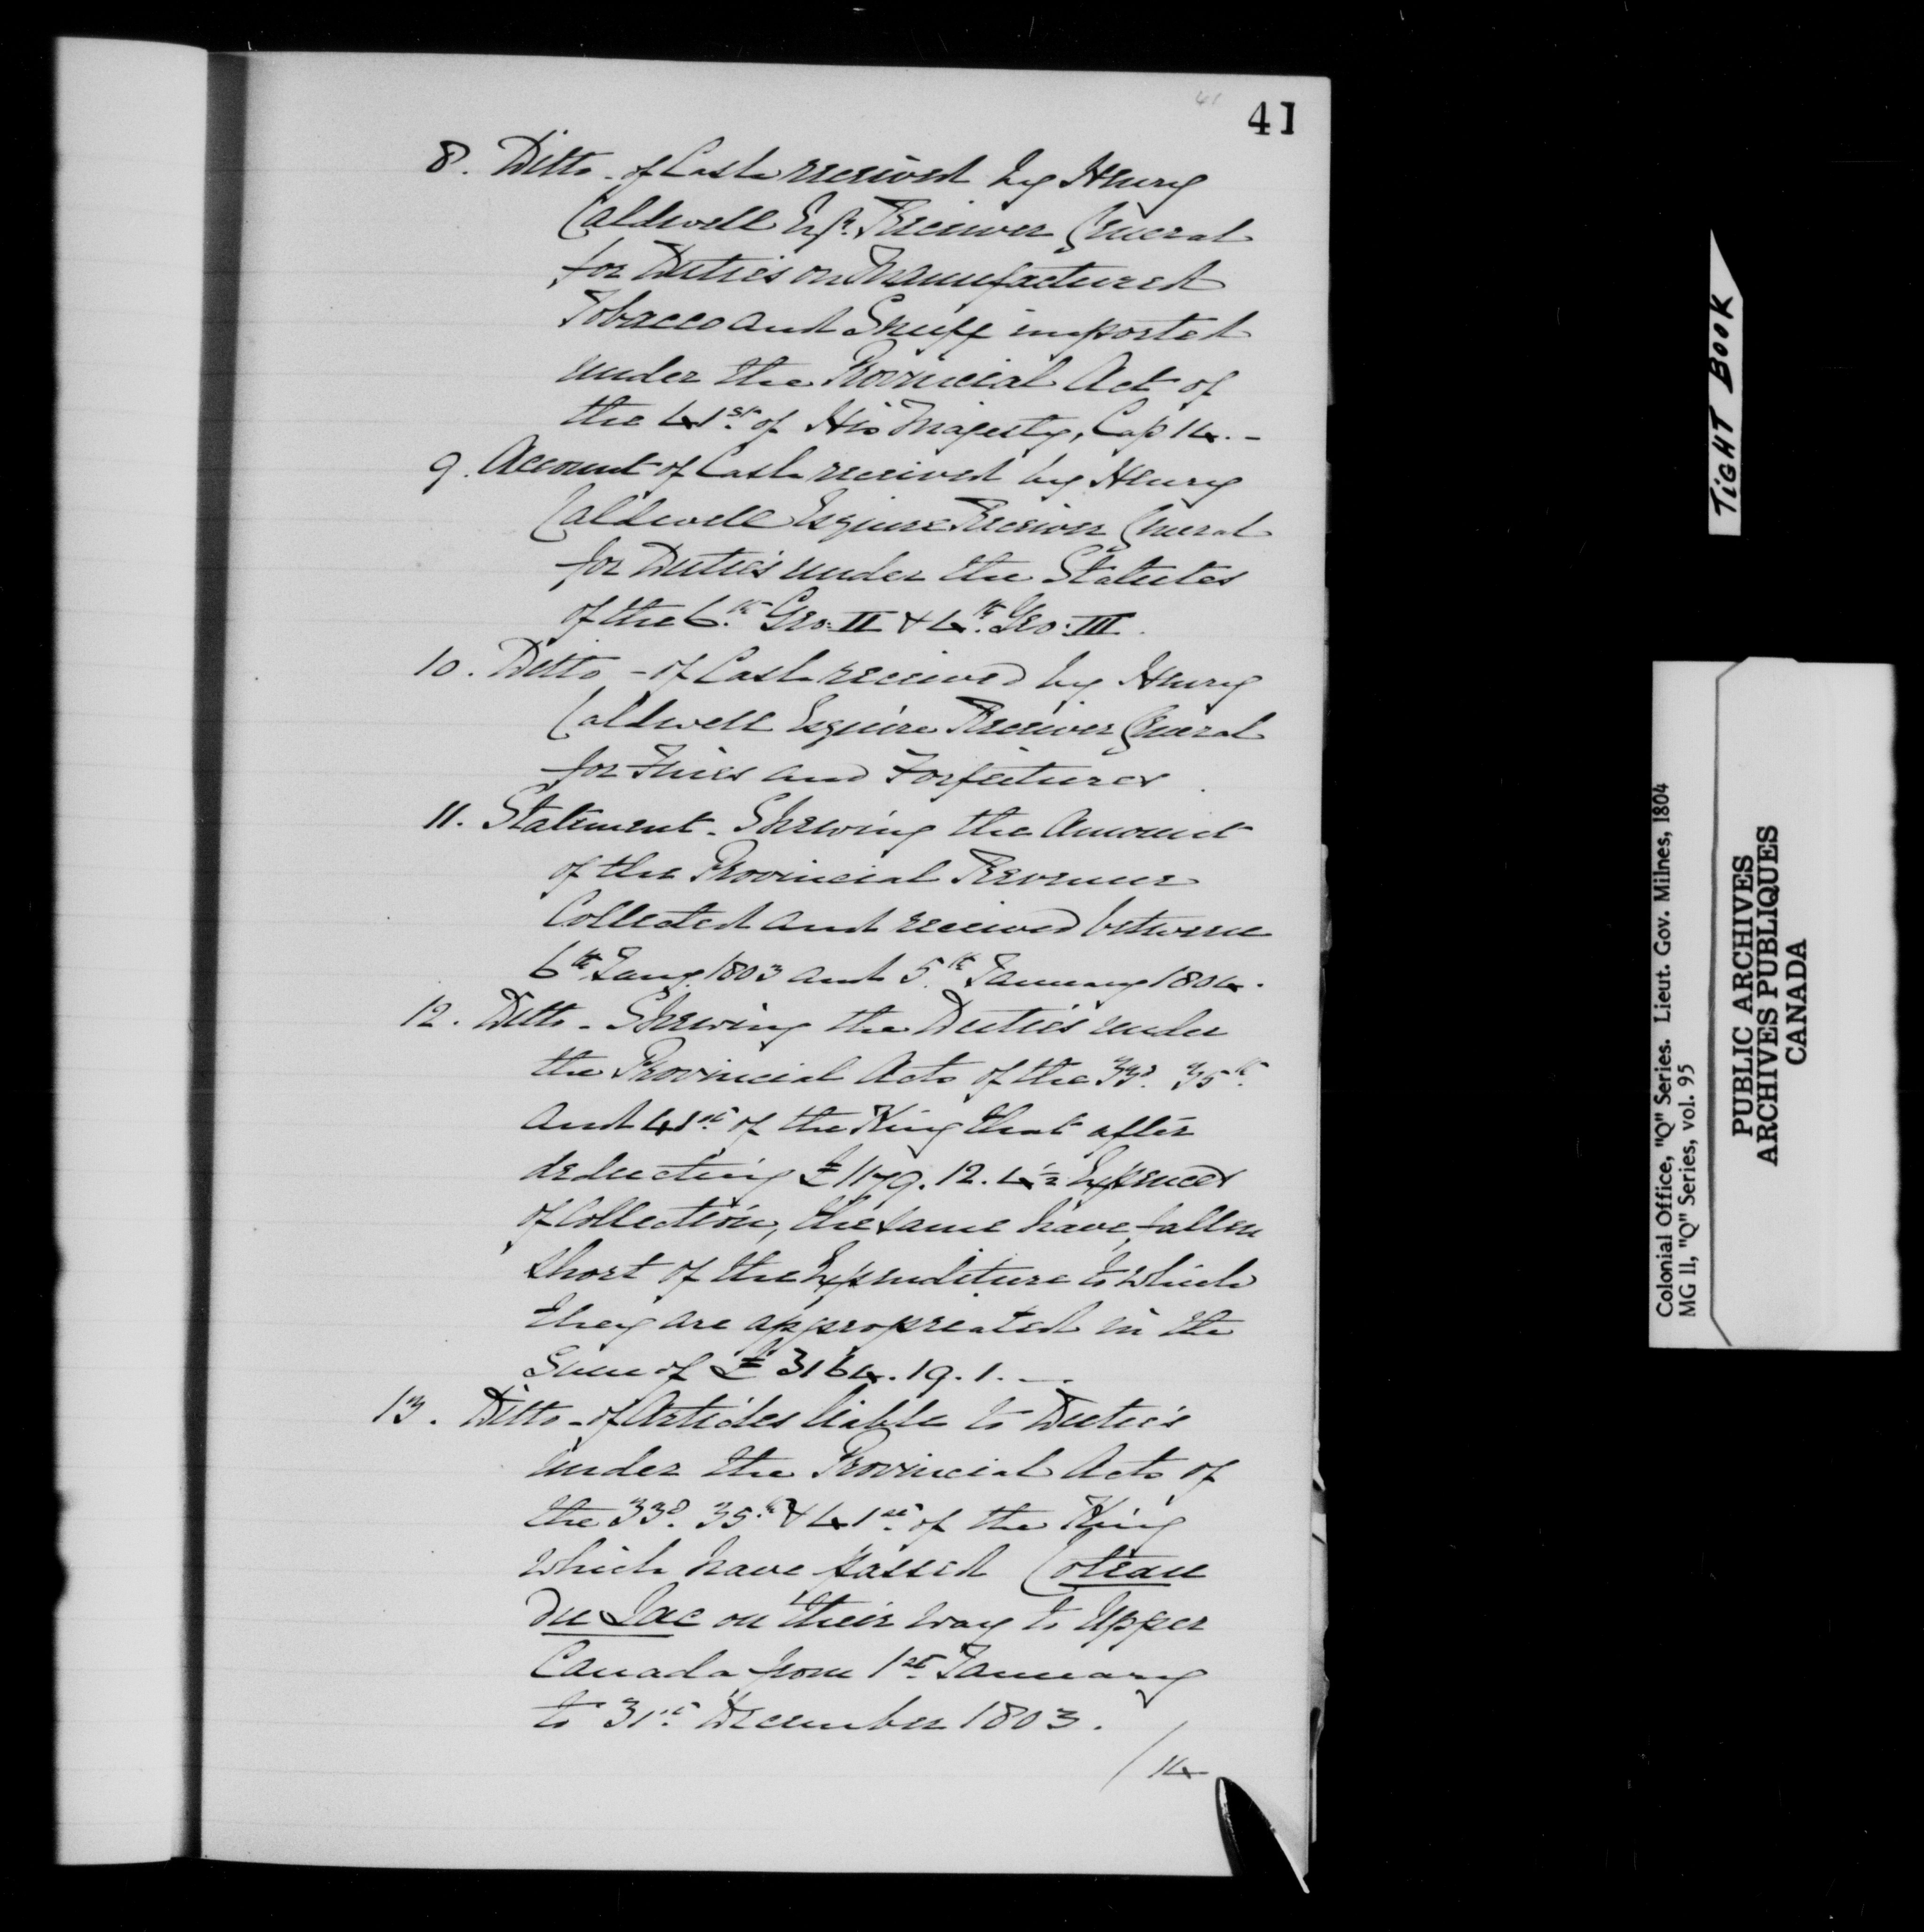 41
41
8. Ditto - of Cash received by Henry
Caldwell Esqr. Receiver General
for Duties on Manufactured
Tobacco and Snuff imported
under the Provincial Act of
the 41st. of His Majesty, Cap 14. -
9. Account of Cash received by Henry
Caldwell Esquire Receiver General
for Duties under the Statutes
of the 6th. Geo: II & 4th. Geo: III.
10. Ditto - of Cash received by Henry
Caldwell Esquire Receiver General
for Fines and Forfeitures.
11. Statement - Shewing the Amount
of the Provincial Revenue
Collected and received between
6th. Jany. 1803 and 5th. January 1804.
12. Ditto - Shewing the Duties under
the Provincial Acts of the 33d. 35th.
and 41st. of the King that after
deducting £1179.12.4½ Expences
of Collection, the same have fallen
short of the Expenditure to which
they are appropreated in the
Sum of £3164.19.1. -
13. Ditto - of Articles liable to Duties
under the Provincial Acts of
the 33d. 35th. & 41st. of the King
which have passed Coteau
du Lac on their way to Upper
Canada from 1st. January
to 31st. December 1803.
/14
TIGHT BOOK
Colonial Office, "Q" Series. Lieut. Gov. Milnes, 1804
MG 11, "Q" Series, vol. 95
PUBLIC ARCHIVES
ARCHIVES PUBLIQUES
CANADA